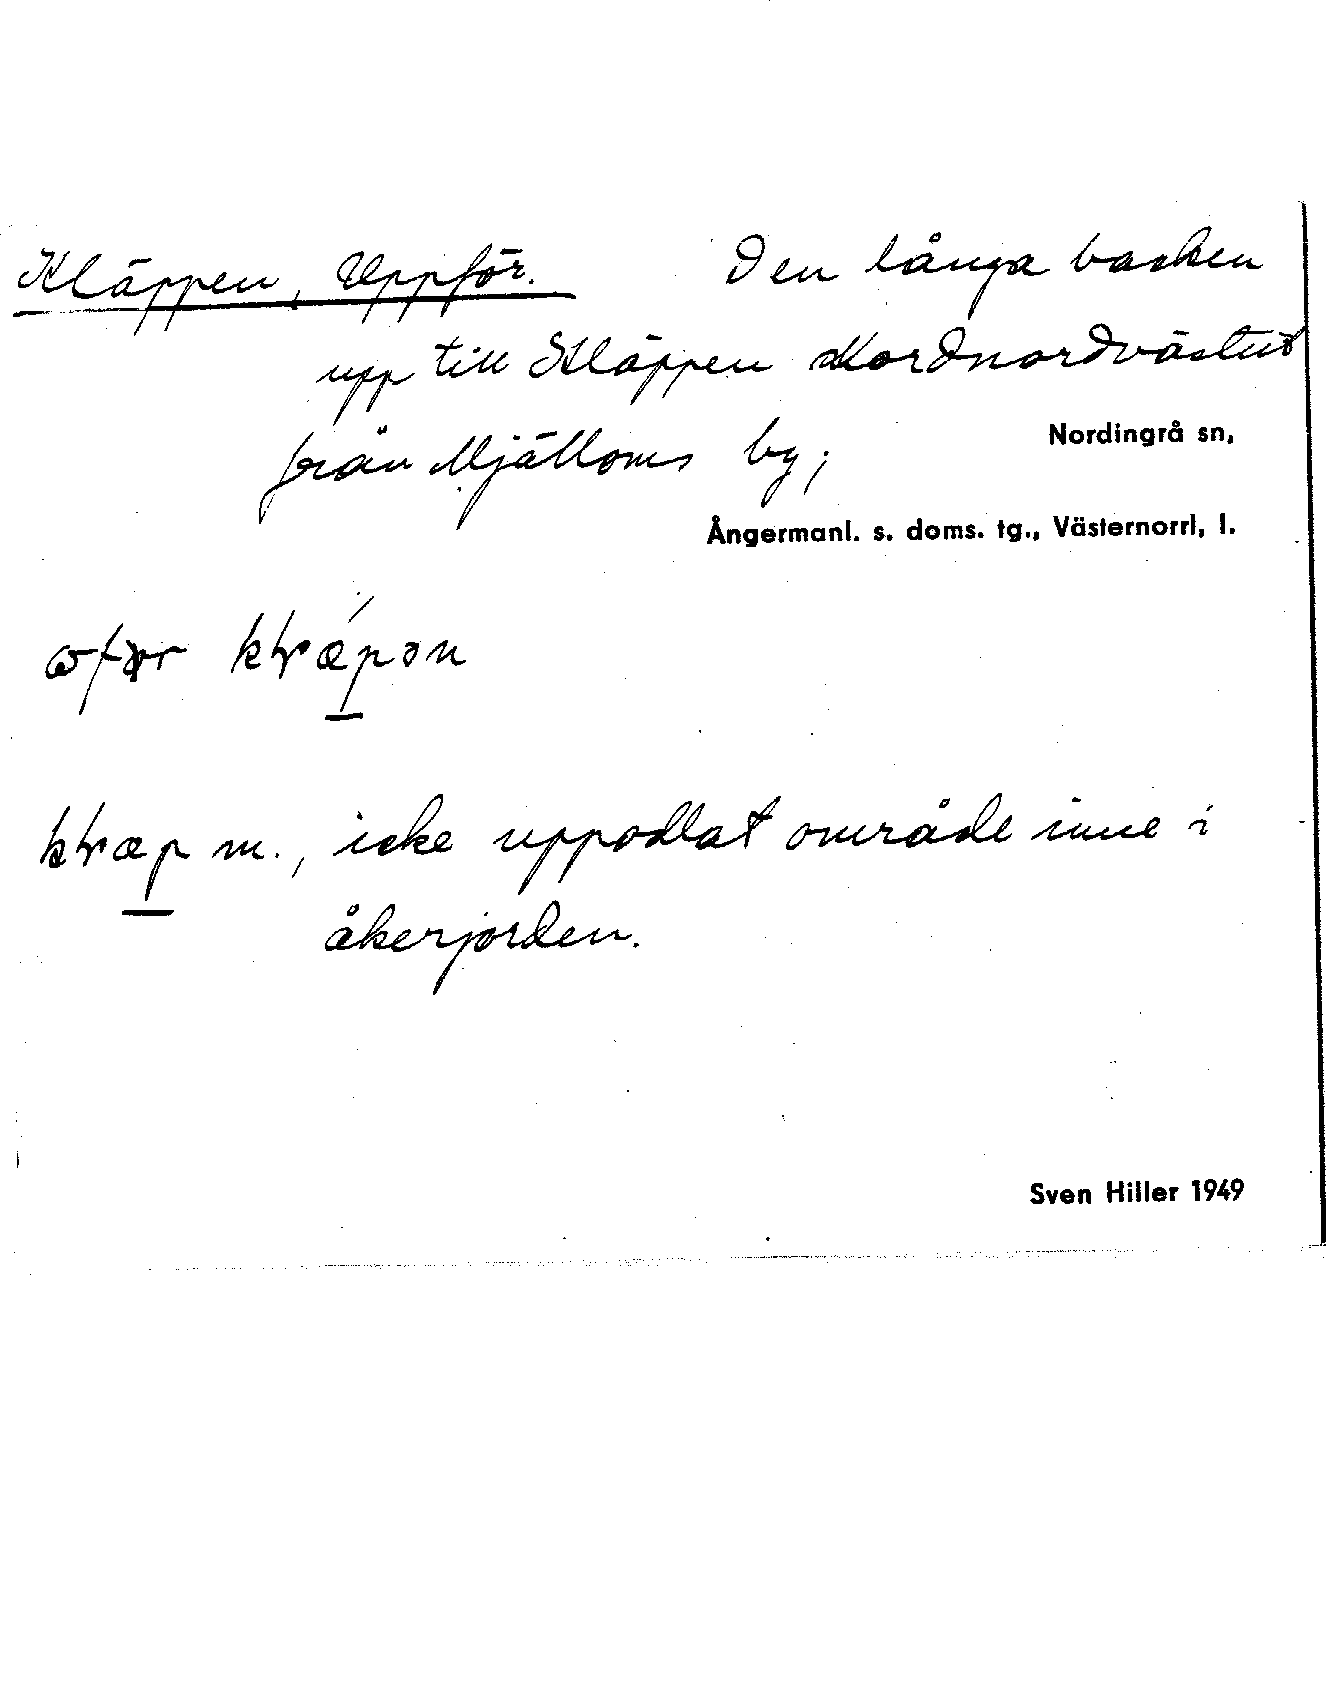 Kläppen, Uppför. Den långa backen
upp till Kläppen nordnordvästut
från Mjälloms by;
Nordingrå sn,
Ångermanl. s. doms. tg., Västernorrl, l.
m., icke uppodlat område inne i
åkerjorden.
Sven Hiller 1949